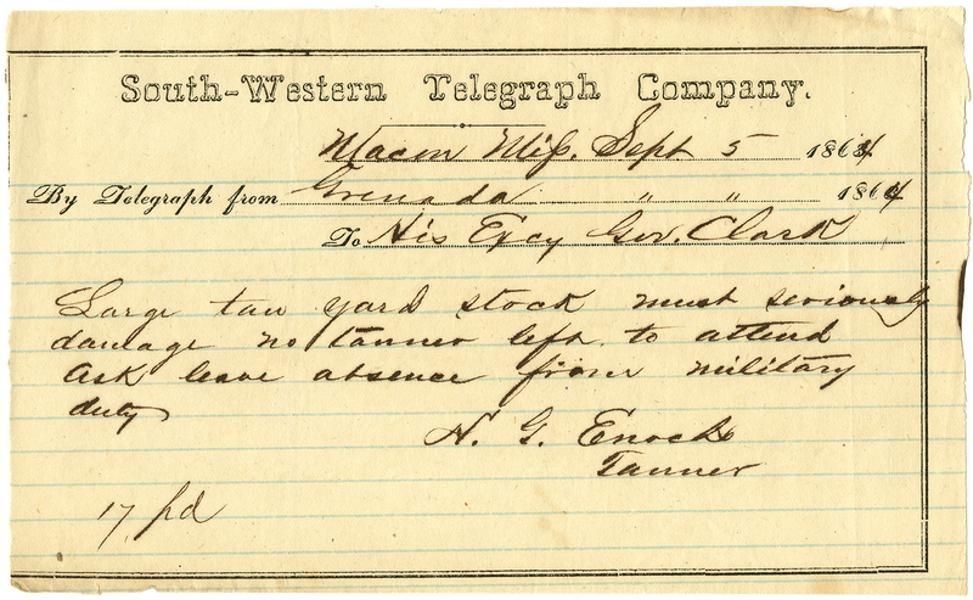 South-Western Telegraph Company.
Macon Miss. Sept 5 1864
By Telegraph from Grenada " " 1864
To His Excy Gov. Clark
Large tan yard stock must seriously
damage no tanner left to attend
Ask leave absence from military
duty
H. G. Enochs
Tanner
17 pd